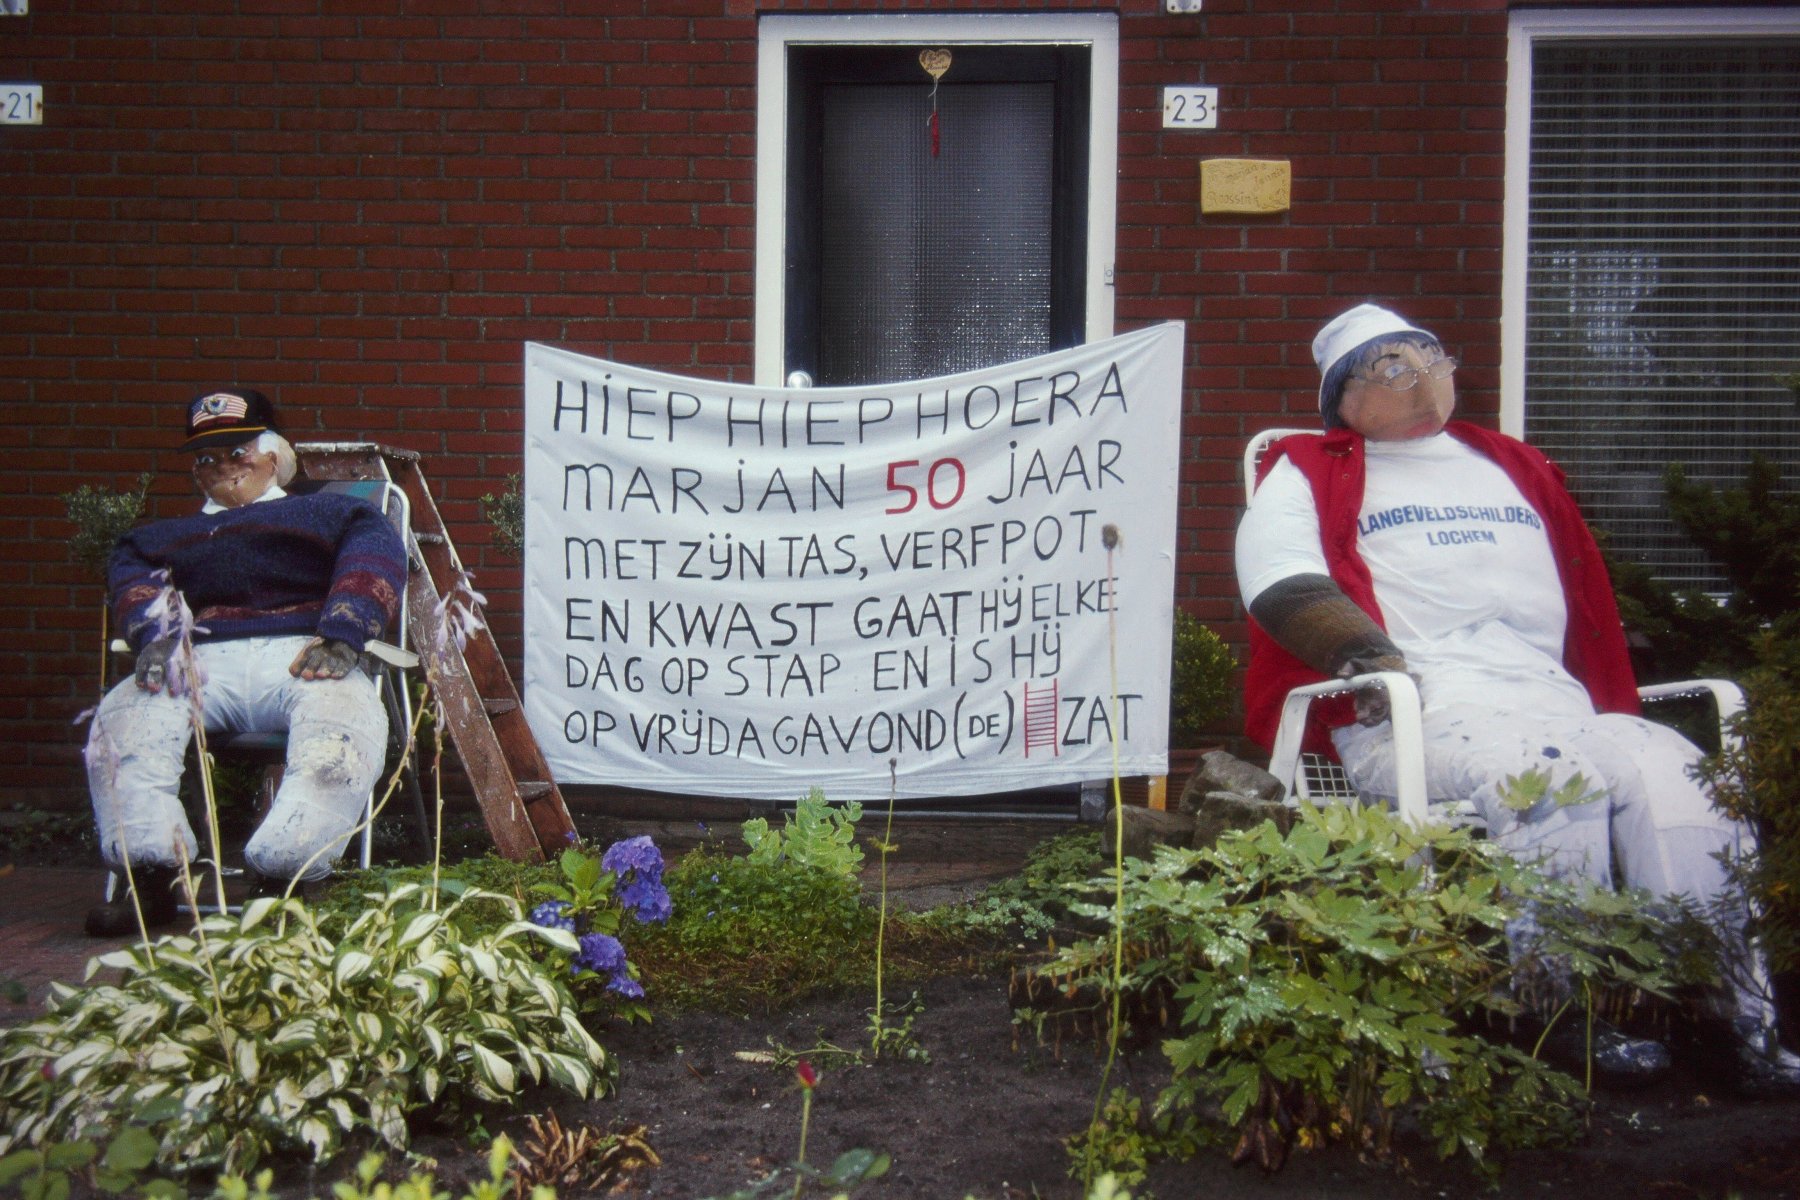 21
23
HIEP HIEP HOERA
MARJAN 50 JAAR
MET ZIJN TAS, VERFPOT
EN KWAST GAAT HIJ ELKE
DAG OP STAP EN IS HIJ
OP VRIJDAGAVOND (DE) ZAT
LANGEVELDSCHILDERS
LOCHEM